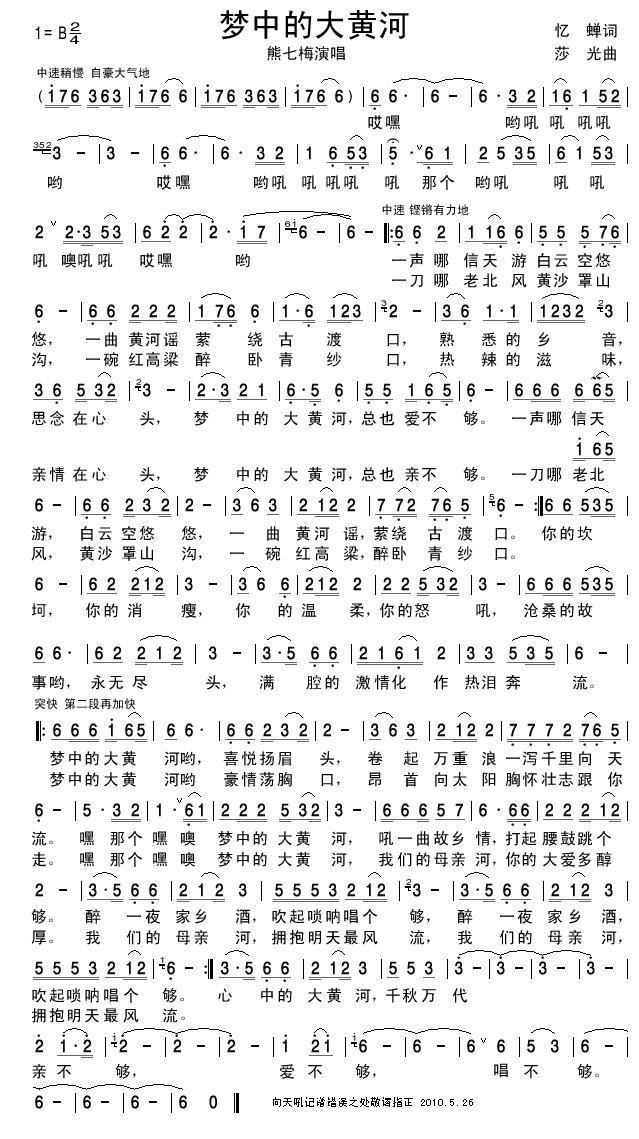 梦中的大黄河
1=B 2/4
忆 蝉词
熊七梅演唱
莎 光曲
中速稍慢 自豪大气地
(176 363 | 176 6 | 176 363 | 176 6) | 6 6· | 6 - | 6· 3 2 | 16 52 |
哎嘿 哟吼 吼 吼吼
352 3 - | 3 - | 6 6· | 6· 3 2 | 1 6 53 | 5· 6 1 | 2 5 35 | 6 1 53 |
哟 哎嘿 哟吼 吼 吼吼 吼 那个 哟吼 吼 吼
中速 铿锵有力地
2 2·3 53 | 6 2 2 | 2· 1 7 | 61 6 - | 6 - |: 6 6 2 | 1 16 6 | 5 5 5 76 |
吼 噢吼吼 哎嘿 哟 一声 哪 信天 游 白云 空悠
一刀 哪 老北 风 黄沙 罩山
6 - | 6 6 2 2 2 | 1 76 6 | 1·6 123 | 3 2 - | 3 6 1·1 | 1232 2 3 |
悠， 一曲 黄河谣 萦 绕 古 渡 口， 熟 悉的 乡 音，
沟， 一碗 红高粱 醉 卧 青 纱 口， 热 辣的 滋 味，
3 6 5 32 | 2 3 - | 2·3 2 1 | 6·5 6 | 5 5 1 65 | 6 - | 6 6 6 6 65 |
思念 在心 头， 梦 中的 大 黄 河，总也 爱不 够。 一声哪 信天
1 65
亲情 在心 头， 梦 中的 大 黄 河，总也 亲不 够。 一刀哪 老北
6 - | 6 6 2 32 | 2 - | 3 6 3 | 2 12 2 | 7 72 765 | 5 6 - :| 6 6 535 |
游， 白云 空悠 悠， 一 曲 黄河 谣，萦绕 古 渡 口。 你的坎
风， 黄沙 罩山 沟， 一 碗 红高 粱，醉卧 青 纱 口。
6 - | 6 2 212 | 3 - | 3 6 6 | 212 2 | 2 2 5 32 | 3 - | 6 6 6 535 |
坷， 你的 消 瘦， 你 的 温 柔，你的怒 吼， 沧桑的故
6 6· | 6 2 212 | 3 - | 3·5 6 6 | 2 16 1 | 3 3 5 35 | 6 - |
事哟， 永无 尽 头， 满 腔的 激情化 作 热泪 奔 流。
突快 第二段再加快
|: 6 6 6 1 65 | 6 6· | 6 6 2 32 | 2 - | 3 6 3 | 2 12 2 | 7 7 7 2 76 5 |
梦中的 大黄 河哟， 喜悦扬眉 头， 卷 起 万重 浪 一泻千里向 天
梦中的 大黄 河哟， 豪情荡胸 口， 昂 首 向太 阳 胸怀壮志跟 你
6 - | 5· 3 2 | 1· 61 | 2 2 2 5 32 | 3 - | 6 6 6 5 7 | 6· 66 | 2 2 2 12 |
流。 嘿 那个 嘿 噢 梦中的 大黄 河， 吼一曲故乡 情，打起 腰鼓跳个
走。 嘿 那个 嘿 噢 梦中的 大黄 河， 我们的母亲 河，你的 大爱多醇
2 - | 3·5 6 6 | 2 12 3 | 5 5 5 3 2 12 | 2 3 - | 3·5 6 6 | 2 12 3 |
够。 醉 一夜 家乡 酒，吹起唢呐唱个 够， 醉 一夜 家乡 酒，
厚。 我 们的 母亲 河，拥抱明天最风 流， 我 们的 母亲 河，
5 5 5 3 2 12 | 1 6 - :| 3·5 6 6 | 2 12 3 | 5 5 3 | 3 - | 3 - | 3 - |
吹起唢呐唱个 够。 心 中的 大黄 河，千秋万 代
拥抱明天最风 流。
2 1·2 | 1 2 - | 2 - | 2 - | 1 21 | 1 6 - | 6 - | 6 6 | 5 3 | 6 - |
亲 不 够， 爱 不 够， 唱 不 够。
6 - | 6 - | 6 0 ‖
向天吼记谱错误之处敬请指正 2010.5.26